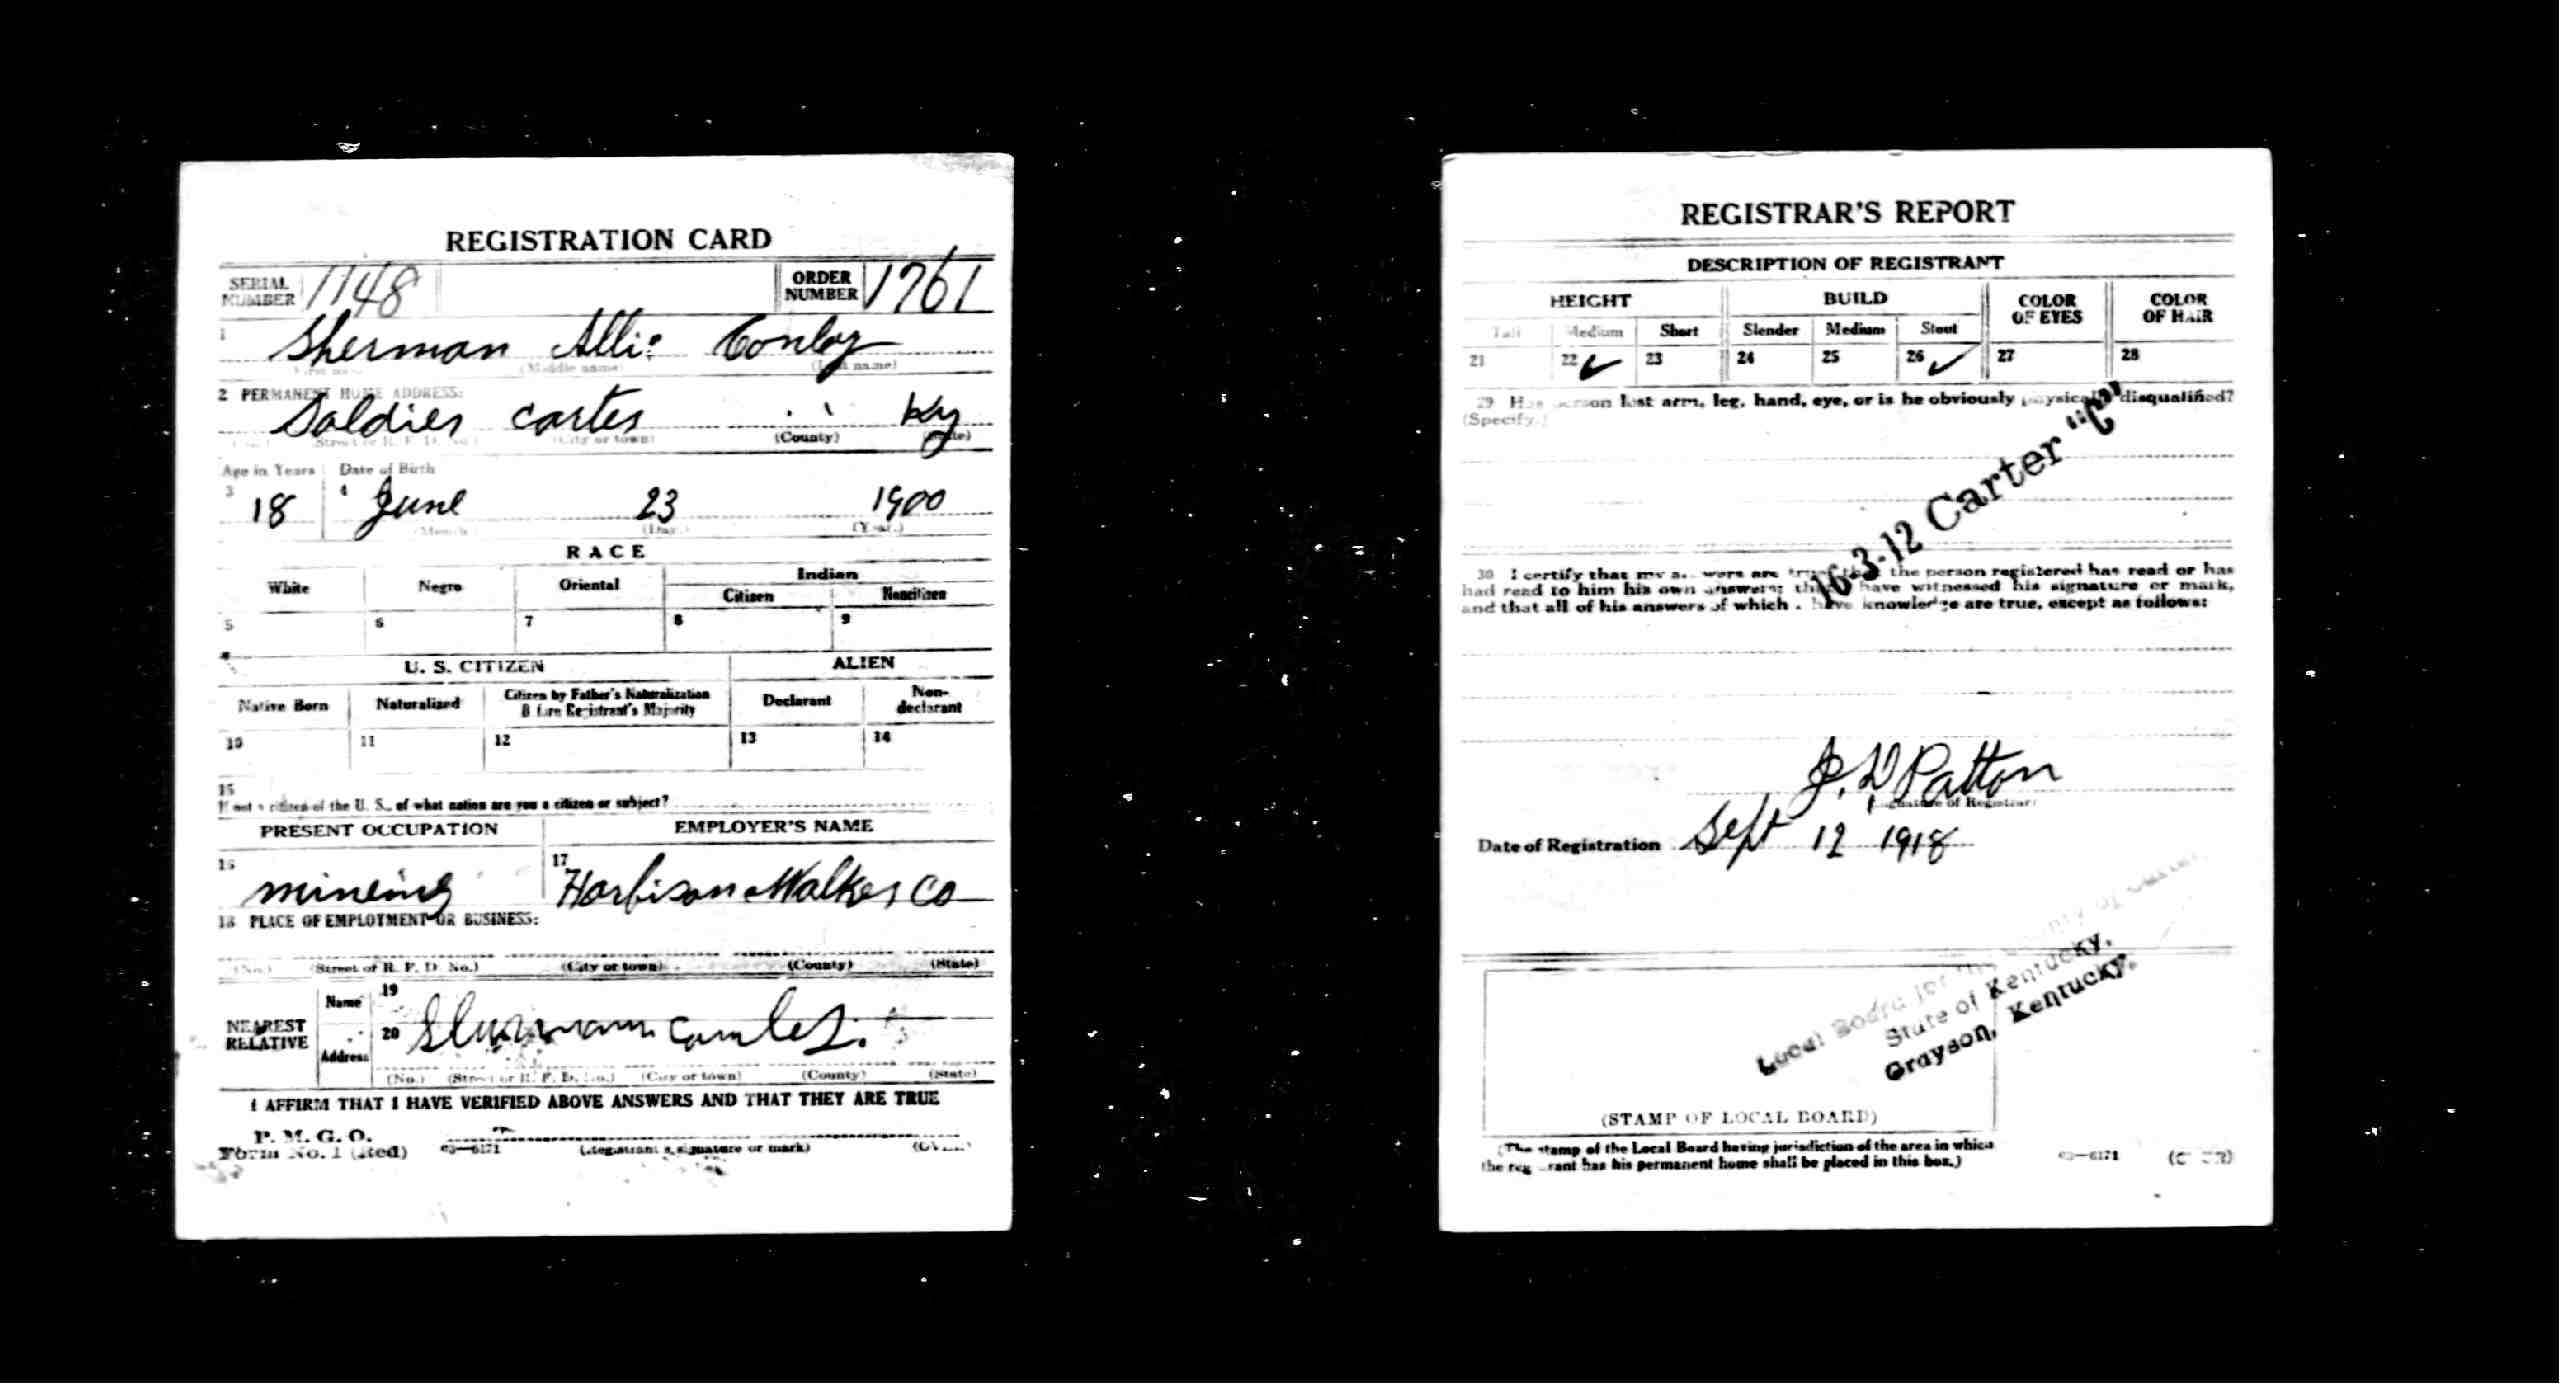 REGISTRATION CARD
SERIAL NUMBER 1148 ORDER NUMBER 1761
1 Sherman Allie Conley
(Middle name) (Last name)
2 PERMANENT HOME ADDRESS:
Soldier carter Ky
(Street or R. F. D. No.) (City or town) (County) (State)
Age in Years Date of Birth
3 18 4 June 23 1900
(Month) (Day) (Year)
RACE
White Negro Oriental Indian
Citizen Noncitizen
5 6 7 8 9
U. S. CITIZEN ALIEN
Native Born Naturalized Citizen by Father's Naturalization Before Registrant's Majority Declarant Non-declarant
10 11 12 13 14
15
If not a citizen of the U. S., of what nation are you a citizen or subject?
PRESENT OCCUPATION EMPLOYER'S NAME
16 mineing 17 Harbison Walker Co
18 PLACE OF EMPLOYMENT OR BUSINESS:
(No.) (Street or R. F. D. No.) (City or town) (County) (State)
NEAREST RELATIVE Name 19
Address 20
(No.) (Street or R. F. D. No.) (City or town) (County) (State)
I AFFIRM THAT I HAVE VERIFIED ABOVE ANSWERS AND THAT THEY ARE TRUE
P. M. G. O.
Form No. 1 (Red) 03—6171 (Registrant's signature or mark) (OVER)
REGISTRAR'S REPORT
DESCRIPTION OF REGISTRANT
HEIGHT BUILD COLOR OF EYES COLOR OF HAIR
Tall Medium Short Slender Medium Stout
21 22 ✓ 23 24 25 26 ✓ 27 28
29 Has person lost arm, leg, hand, eye, or is he obviously physically disqualified?
(Specify.)
16-3-12 Carter "C"
30 I certify that my answers are true; that the person registered has read or has
had read to him his own answers; that I have witnessed his signature or mark,
and that all of his answers of which I have knowledge are true, except as follows:
J. D Patton
(Signature of Registrar)
Date of Registration Sept 12 1918
Local Board for the County of Carter
State of Kentucky,
Grayson, Kentucky.
(STAMP OF LOCAL BOARD)
(The stamp of the Local Board having jurisdiction of the area in which
the registrant has his permanent home shall be placed in this box.)
03—6171 (OVER)